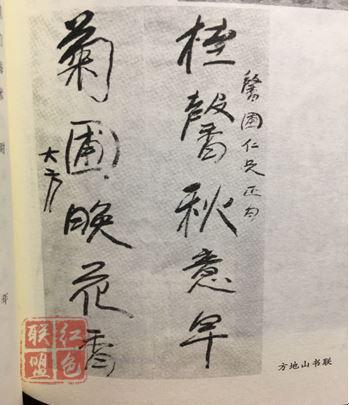 馨圃仁兄正
桂馨秋意早
菊圃晚花香
大方
方地山书联
红色联盟